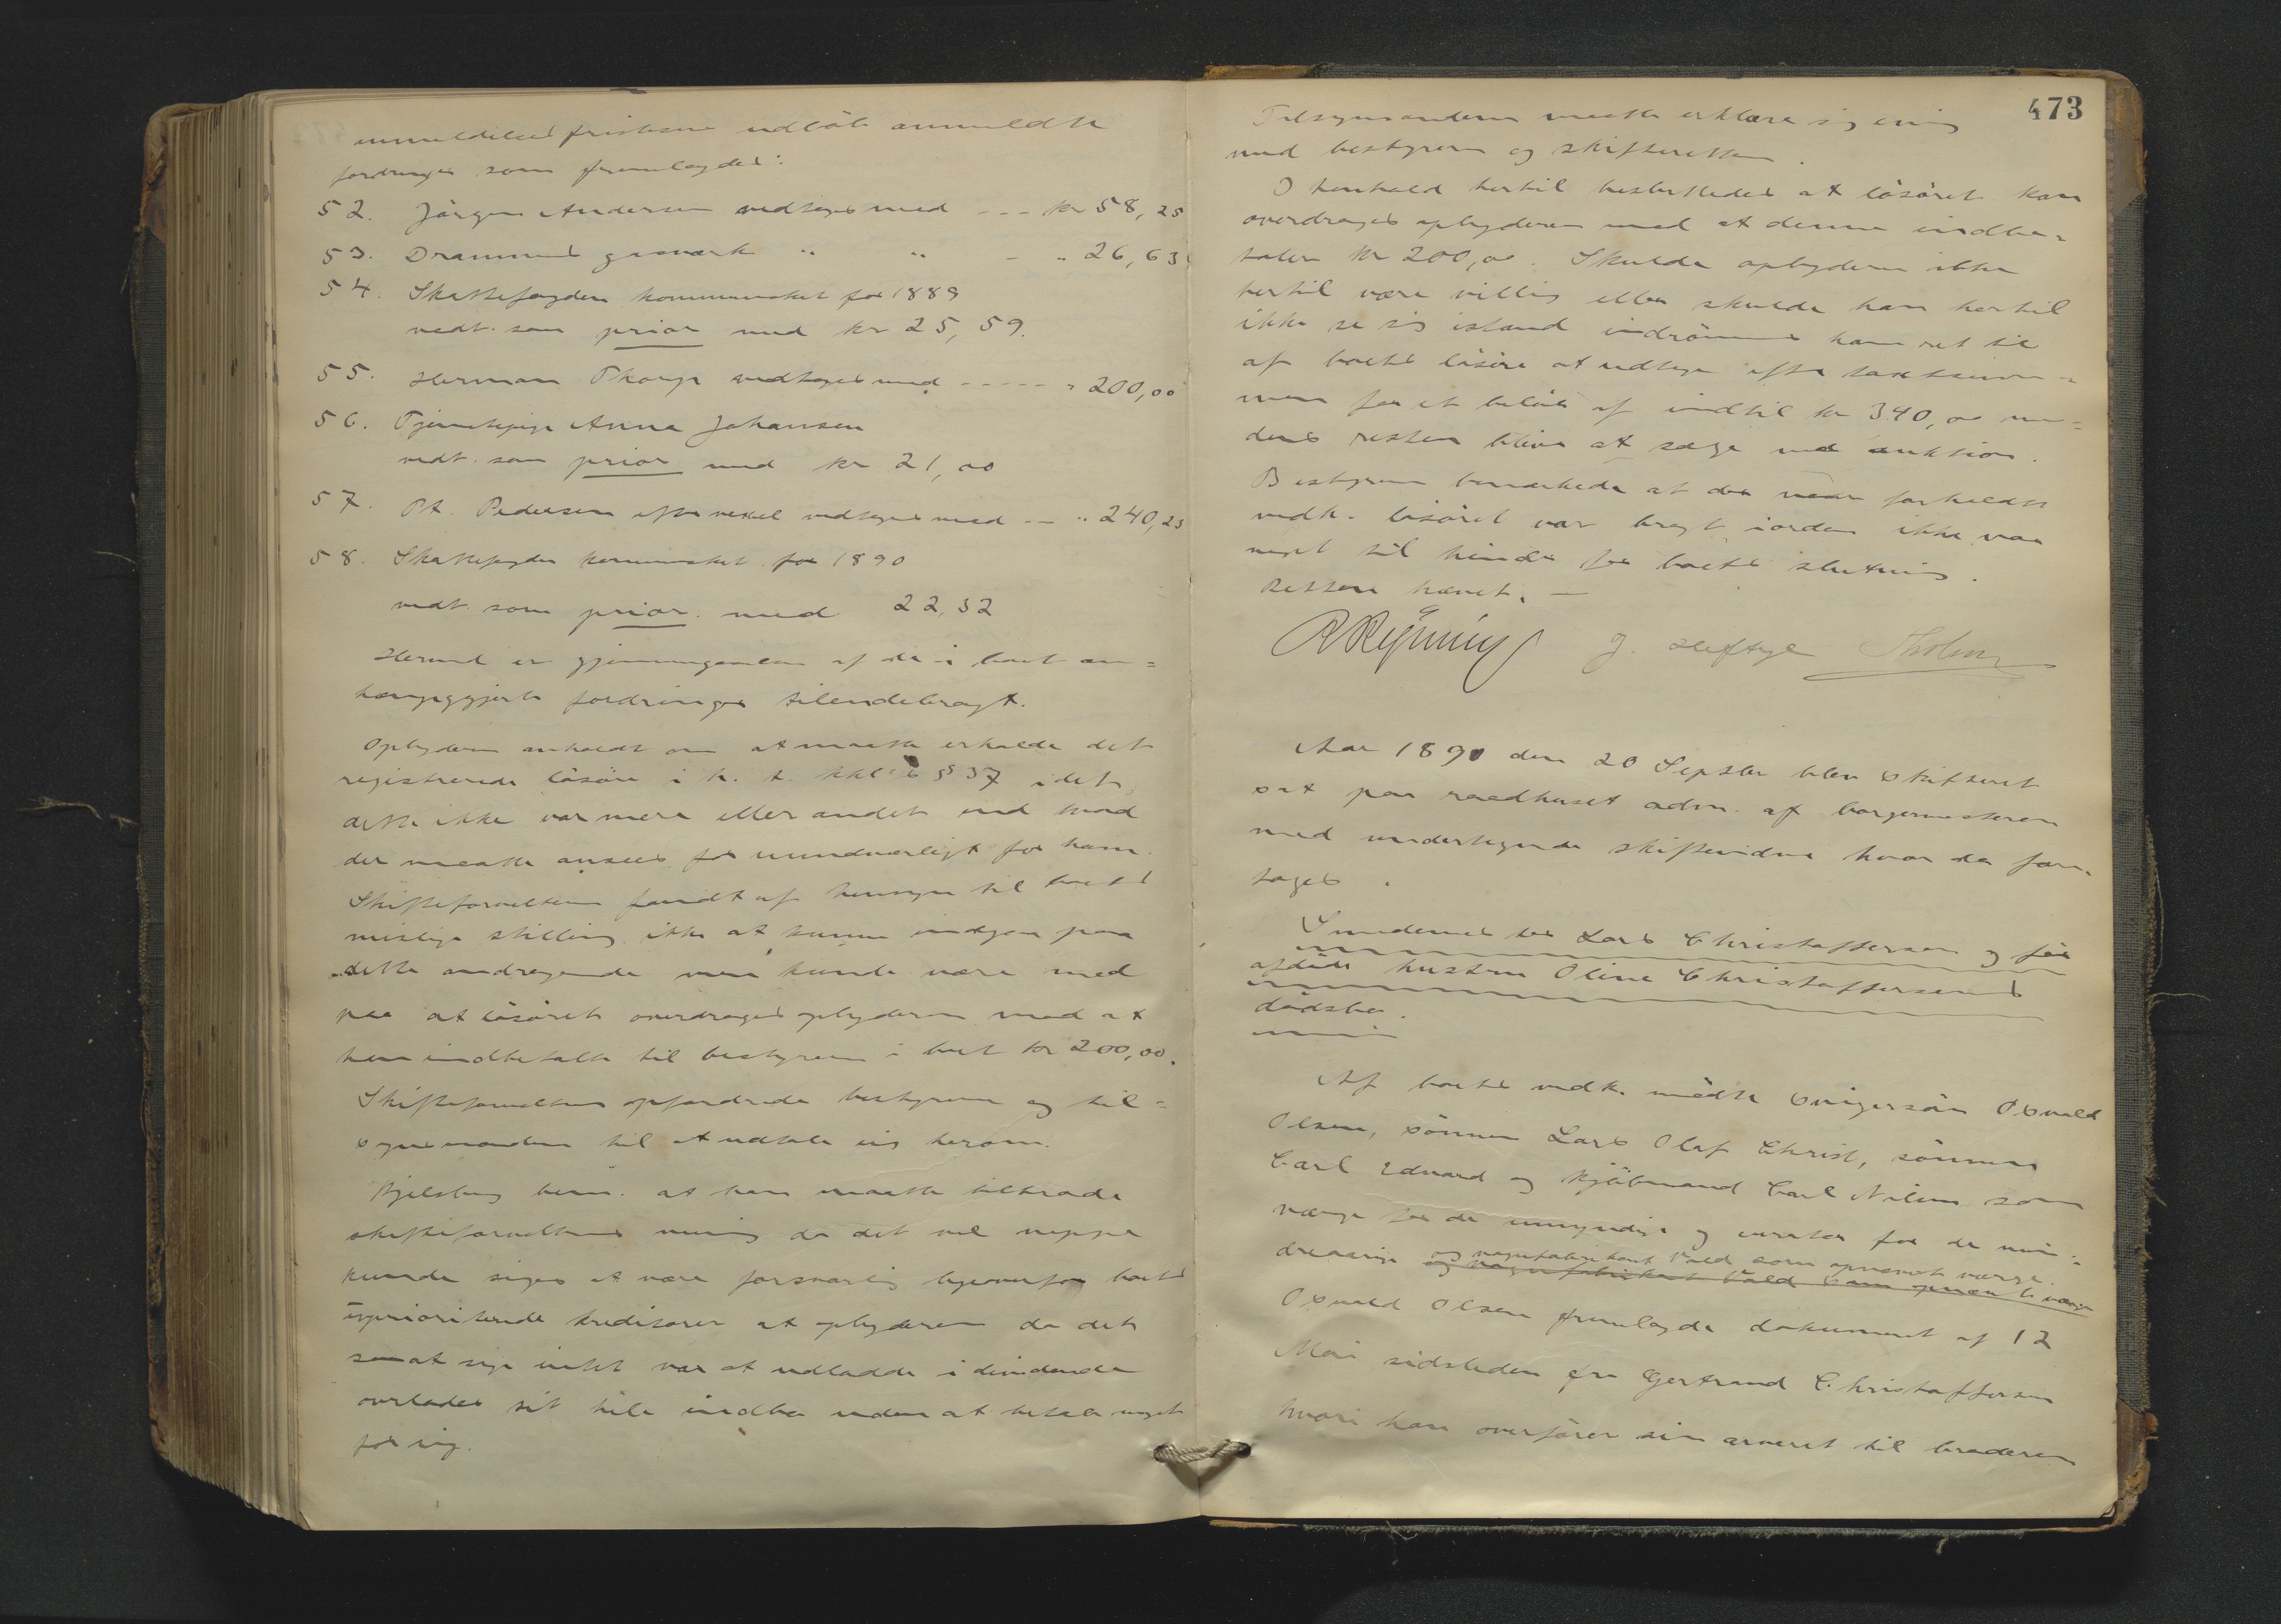 anmeldelsesfristens udløb anmeldte
fordringer som fremlagdes:
52. Jörgen Andersen vedtoges med - - - kr 58,25
53. Drammens gasværk " " - " 26,63
54. Skattefogden kommuneskat for 1889
vedt. som prior med kr 25,59.
55. Herman Thorp vedtoges med - - - - - " 200,00
56. Tjenestepige Anna Johansen
vedt. som prior med kr 21,00
57. Pt. Pedersen efter vexel vedtoges med - - " 240,23
58. Skattefogden kommuneskat for 1890
vedt som prior. med 22,32
Hermed er gjennemgaaelsen af de i boet an=
hængiggjorte fordringer tilendebragt.
Opbyderen anholdt om at maatte erholde det
registrerede lösöre i h. t. § 37 idet
dette ikke var mere eller andet end hvad
der maatte ansees for uundværligt for ham.
Skifteforvalteren fandt af hensyn til boets
mislige stilling ikke at kunne indgaa paa
dette andragende men kunde være med
paa at lösöret overdroges opbyderen mod at
han indbetalte til bestyreren i boet kr 200,00.
Skifteforvalteren opfordrede bestyreren og til=
synsmanden til at udtale sig herom.
Kjelsberg bem. at han maatte tiltræde
skifteforvalterens mening da det vel neppe
kunde siges at være forsvarlig ligeoverfor boets
uprioriterede kreditorer at opbyderen da det
saa at sige intet var at udlodde i dividende
overlades sit hele indbo uden at betale noget
for sig.
473
Tilsynsmanden maatte erklære sig enig
med bestyreren og skifteretten.
I henhold hertil besluttedes at lösöret kan
overdrages opbyderen mod at denne indbe=
taler kr 200,00. Skulde opbyderen ikke
hertil være villig eller skulde han hertil
ikke se sig istand indrömmes ham ret til
af boets lösöre at udtage efter taxtsum=
men for et belöb af indtil kr 340,00 me=
dens resten bliver at sælge ved auktion.
Bestyreren bemærkede at der naar forholdet
vedk. lösöret var bragt iorden ikke var
noget til hinder for boets slutning.
Retten hævet. —
J. Heftye Tholin
Aar 1890 den 20 Septbr blev skifteret
sat paa raadhuset adm. af borgermesteren
med undertegnede skiftevidner hvor da fore=
toges.
Smedemester Lars Christoffersen og før
afdöde hustru Oline Christoffersens
dödsbo.
Af boets vedk. mödte svigersön Osvald
Olsen, sönnen Lars Olaf Christ, sönnen
Carl Edvard og kjöbmand Carl Nilsen som
værge for de umyndige og curator for de min=
dreaarige og vognfabrikant Vold som opnævnt værge.
og vognfabrikant Vold som opnævnt værge
Osvald Olsen fremlagde dokument af 12
Mai sidstleden fra Gertrand Christoffersen
hvori han overförer sin arveret til broderen